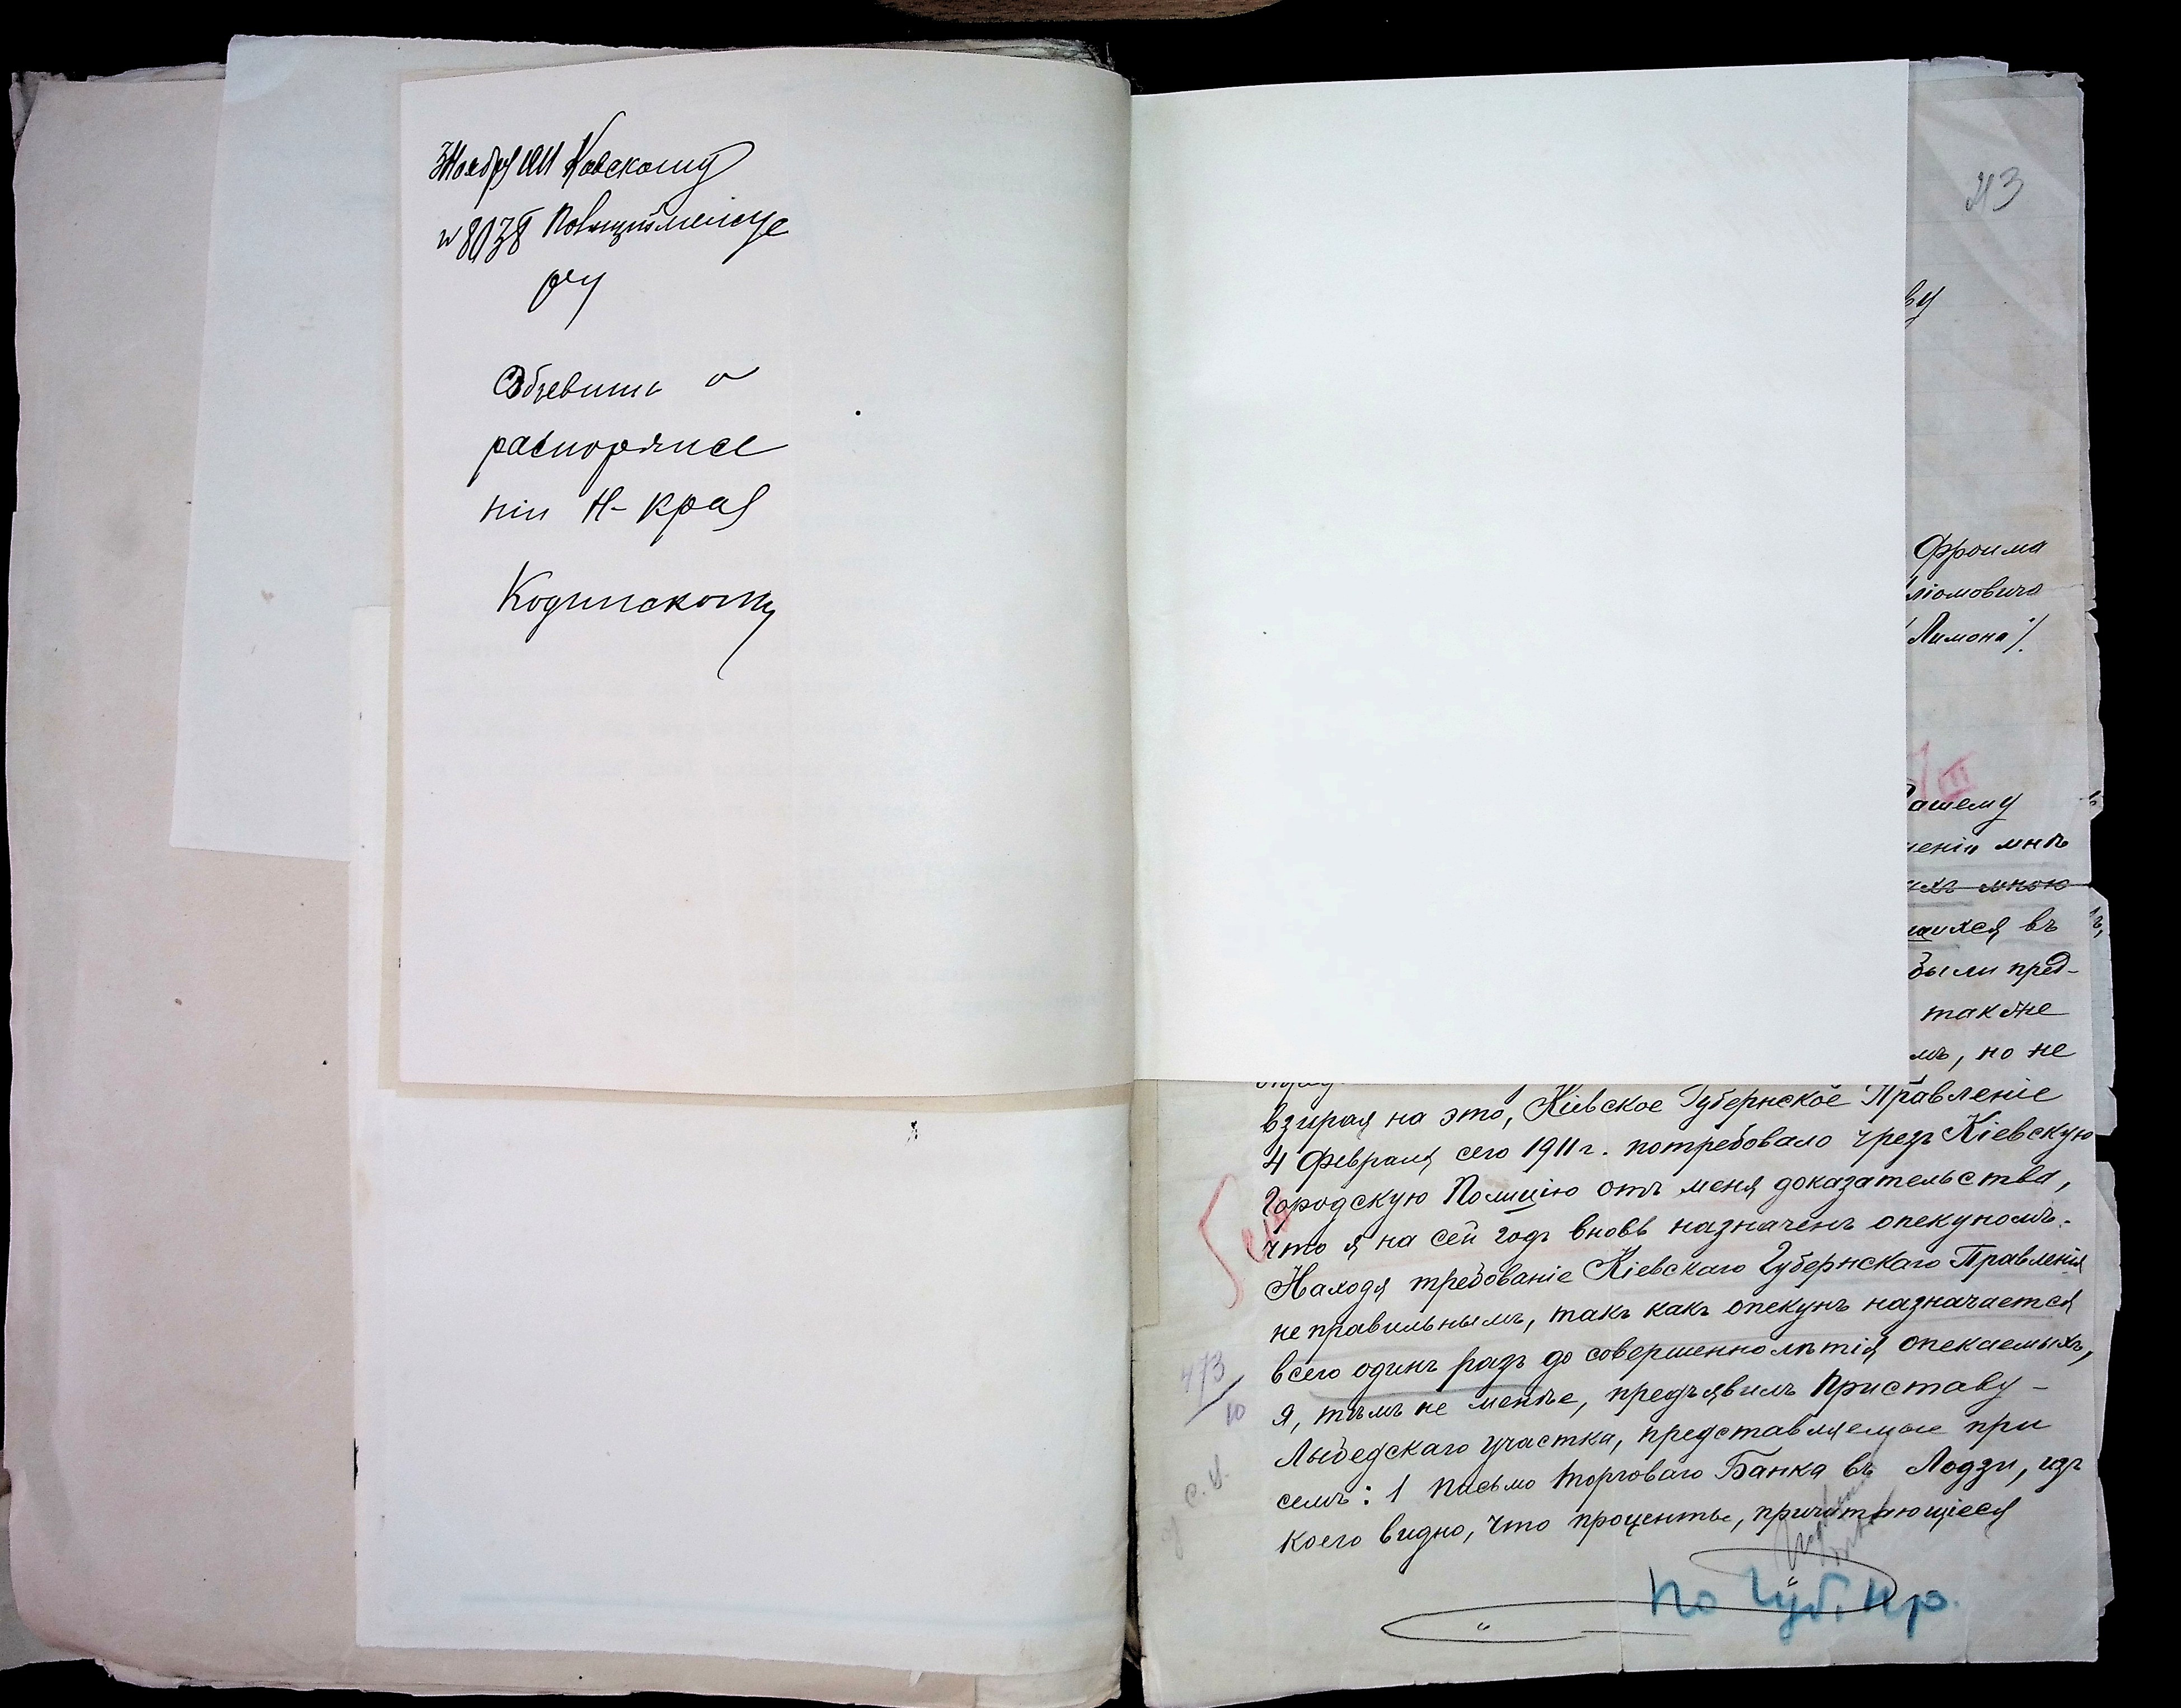 3 Ноября 1911 Кіевскому
№ 8038 Полиціймейсте
ру
Объявить о
распоряже
ніи Н- Края
Кодинскому
213
ву
Фроима
ліомовича
Лимона/.
III
Вашему
ченіи мнѣ
ихъ мною
щихся въ
были пред-
также
мъ, но не
взирая на это, Кіевское Губернское Правленіе
4 Февраля сего 1911 г. потребовало чрезъ Кіевскую
Городскую Полицію отъ меня доказательства,
что я на сей годъ вновь назначенъ опекуномъ.
Находя требованіе Кіевскаго Губернскаго Правленія
неправильнымъ, такъ какъ опекунъ назначается
всего одинъ разъ до совершеннолѣтія опекаемыхъ,
я, тѣмъ не менѣе, предъявилъ Приставу -
Лыбедскаго участка, представляемые при
семъ: 1 письмо Торговаго Банка въ Лодзи, изъ
коего видно, что проценты, причитающіеся
473/10
По Губ. Пр.